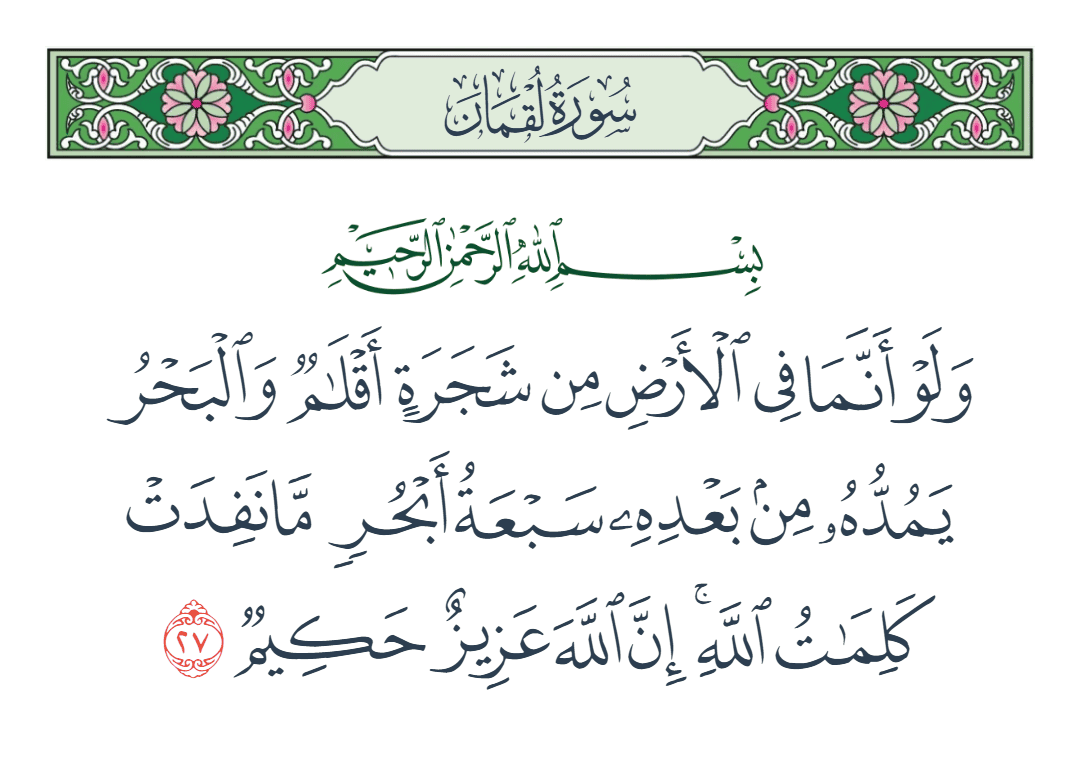 سُورَةُ لُقْمَانَ
بِسْمِ ٱللَّهِ ٱلرَّحْمَٰنِ ٱلرَّحِيمِ
وَلَوْ أَنَّمَا فِى ٱلْأَرْضِ مِن شَجَرَةٍ أَقْلَٰمٌ وَٱلْبَحْرُ
يَمُدُّهُۥ مِنۢ بَعْدِهِۦ سَبْعَةُ أَبْحُرٍ مَّا نَفِدَتْ
كَلِمَٰتُ ٱللَّهِ ۚ إِنَّ ٱللَّهَ عَزِيزٌ حَكِيمٌ ٢٧